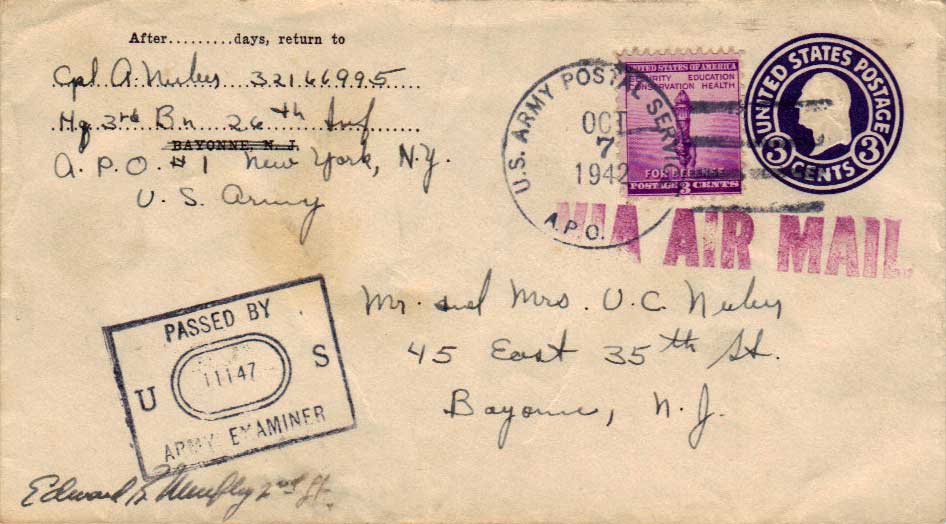 After.........days, return to
Cpl. A. 32166995
Hq 3rd Bn 26th Inf
BAYONNE, N. J.
A.P.O. #1 New York, N.Y.
U.S. Army
U.S. ARMY POSTAL SERVICE
OCT
7
1942
A.P.O.
UNITED STATES OF AMERICA
SECURITY EDUCATION
CONSERVATION HEALTH
FOR DEFENSE
POSTAGE 3 CENTS
UNITED STATES POSTAGE
3 3
CENTS
VIA AIR MAIL
PASSED BY
U 11147 S
ARMY EXAMINER
Mr. and Mrs. V.C.
45 East 35th St.
Bayonne, N.J.
Edward 2nd Lt.